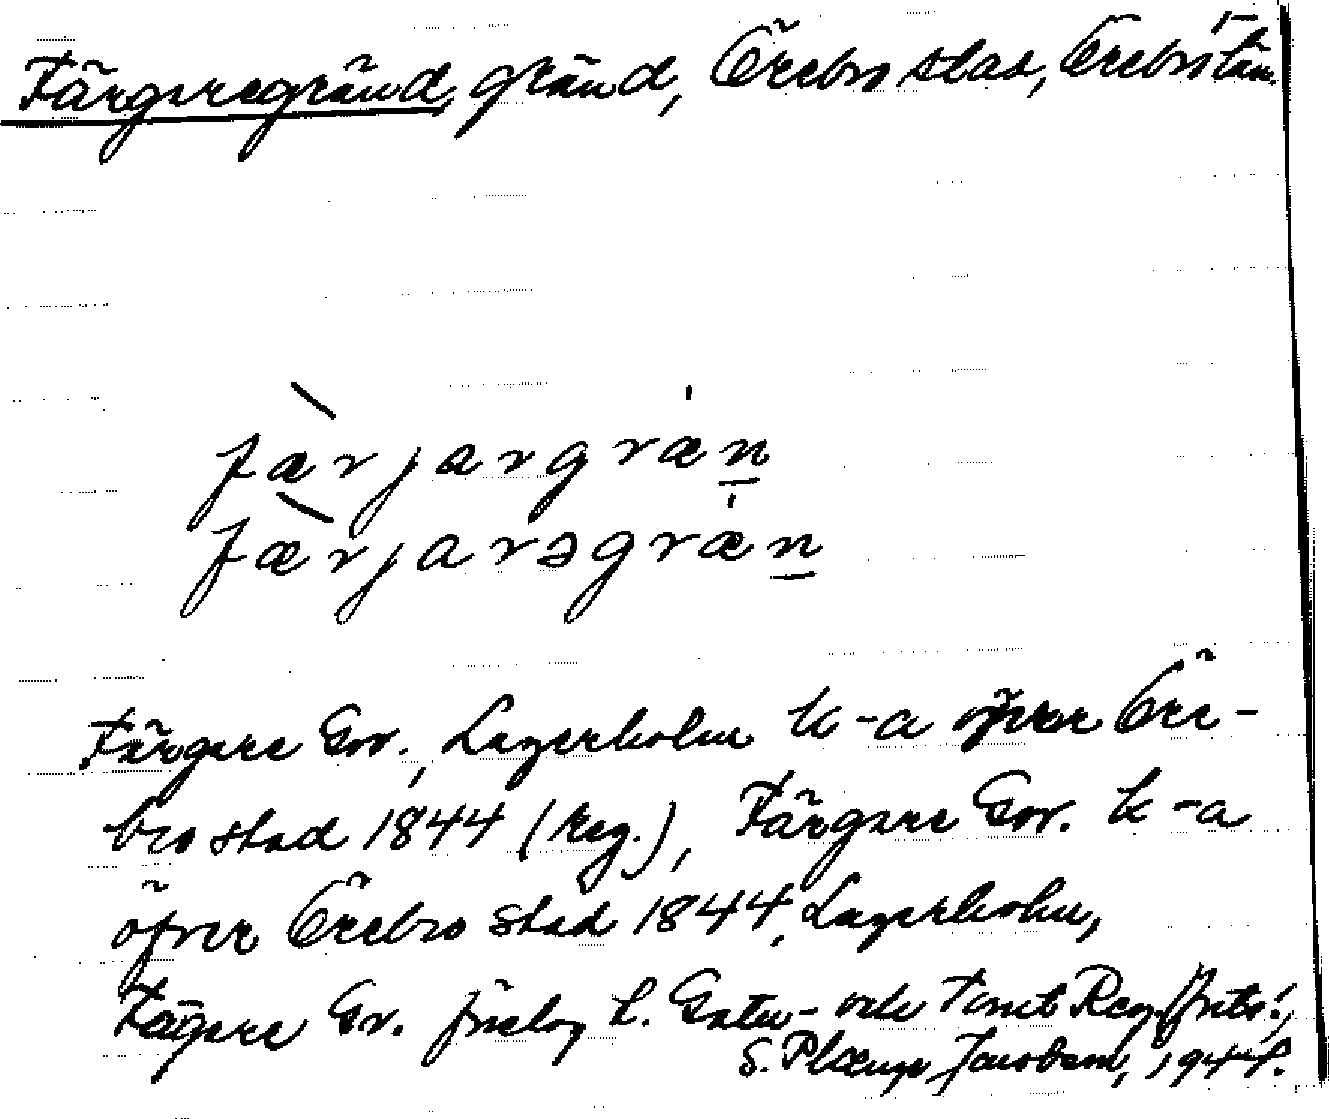 Färgaregränd, gränd, Örebro stad, Örebro län
fæ̀rjargræ̍n̲
fæ̀rjarəgræ̍n̲
Färgare Gr., Lagerholm k-a öfver Öre-
bro stad 1844 (Reg.), Färgare Gr. k-a
öfver Örebro Stad 1844, Lagerholm,
Färgare Gr. förslag t. Gatu- och Tomt Reg.
S. Jacobson, 1944.